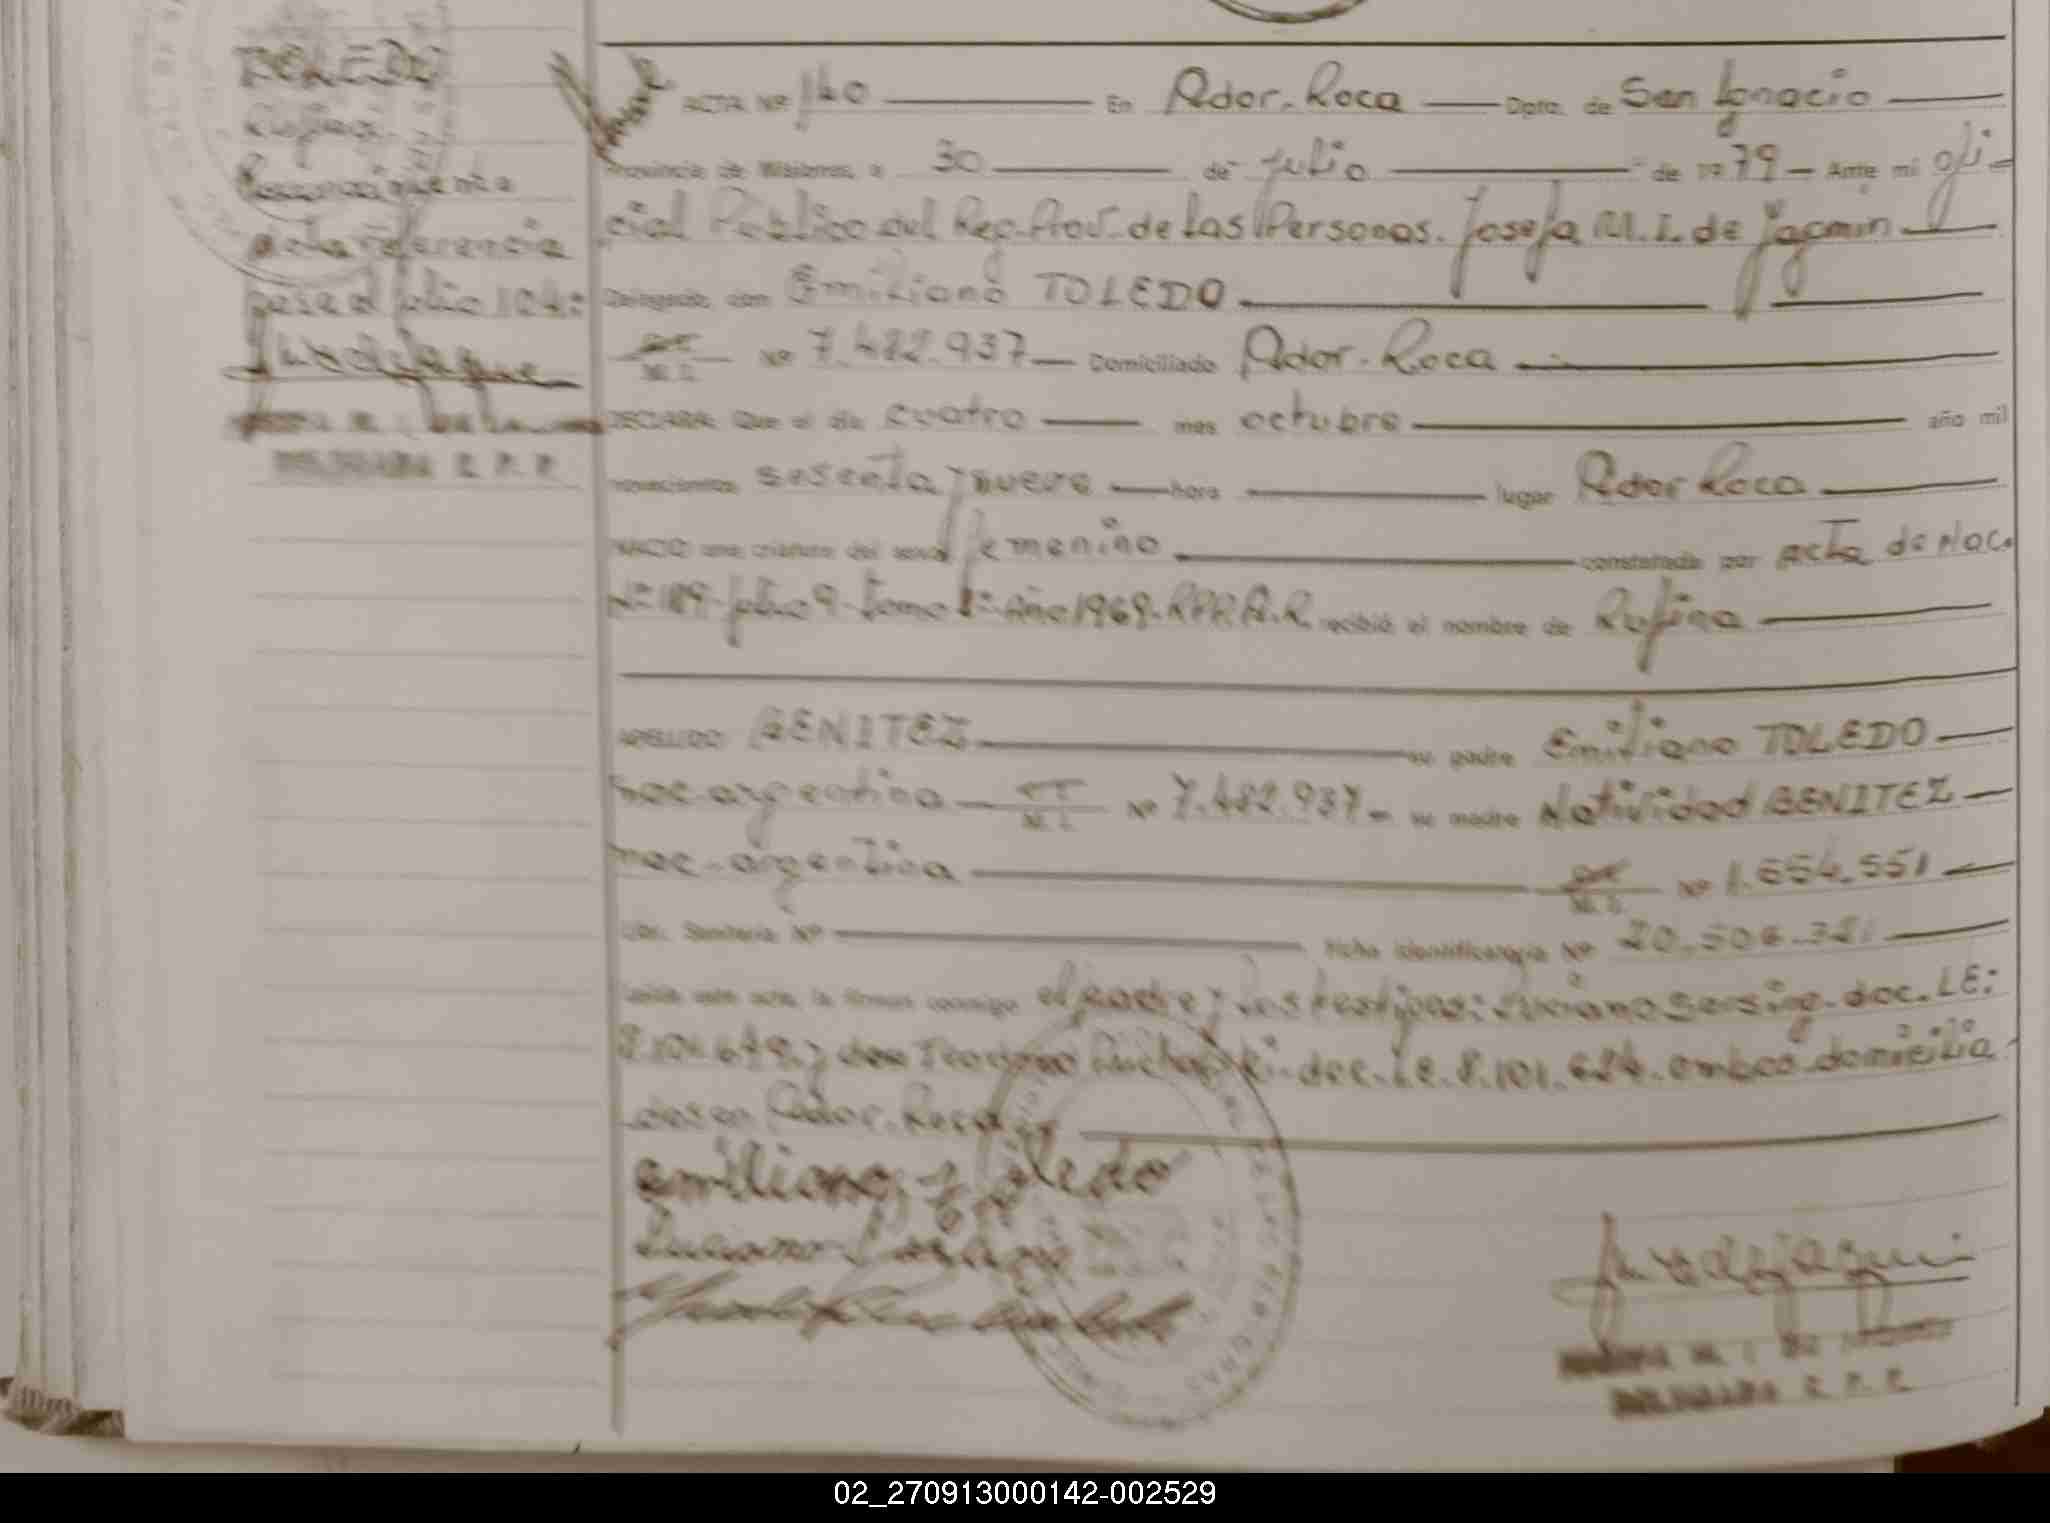 TOLEDO
Rufina
Reconocimiento
de la referencia
pasa al folio 104:
ACTA Nº 140 En Pdor. Roca Dpto. de San Ignacio
Provincia de Misiones, a 30 de julio de 1979 Ante mi ofi-
cial Público del Reg. Prov. de las Personas. Josefa M. I. de Jacmin
Delegado, don Emiliano TOLEDO
M. I. Nº 7.482.937 Domiciliado Pdor. Roca
DECLARA: Que el día cuatro mes octubre año mil
novecientos sesenta y nueve hora lugar Pdor Roca
NACIO una criatura del sexo femenino constatado por acta de Nac.
Nº 189 folio 9 tomo 1º Año 1969. R.P.P. P.R. recibió el nombre de Rufina
APELLIDO BENITEZ su padre Emiliano TOLEDO
nac. argentina M. I. Nº 7.482.937 su madre Natividad BENITEZ
nac. argentina M. I. Nº 1.654.551
Libr. Sanitaria Nº Ficha Identificatoria Nº 20.506.321
Leída este acta, la firman conmigo el padre y los testigos: Luciano doc. LE:
8.101.649. y don Teodoro doc. Le. 8.101.624. ambos domicilia
dos en Pdor. Roca
emiliano toledo
Luciano
DELEGADA R. P. P.
DELEGADA R. P. P.
02_270913000142-002529